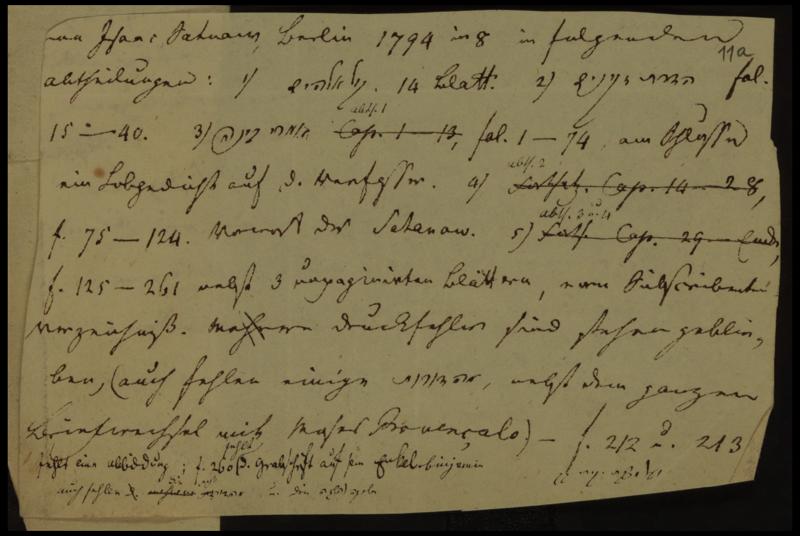 von Isaac Satnaw, Berlin 1794 in 8 in folgenden
11a
abtheilungen: 1) קול אלהים. 14 Blatt. 2) הדרת זקנים fol.
abth. 1
15 — 40. 3) אמרי בינה Cap. 1 — 13, fol. 1 — 74, am Schlusse
ein Lobgedicht auf d. Verfasser. abth. 2 4) Cap. 14 — 28,
abth. 3 u. 4
f. 75 — 124. Vorwort des Satanow. 5) Cap. 29 — Ende,
f. 125 — 261 nebst 3 unpaginirten Blättern, vom Subscribenten
Verzeichniß. Mehrere Druckfehler sind stehen geblie-
ben, (auch fehlen einige, nebst dem ganzen
Briefwechsel mit Moses Provençalo) — f. 212 u. 213
fehlt eine abbildung; f. 260 fehlt d. Grabschrift auf sein Enkel Binjamin
auch fehlen d. mehrere u. die